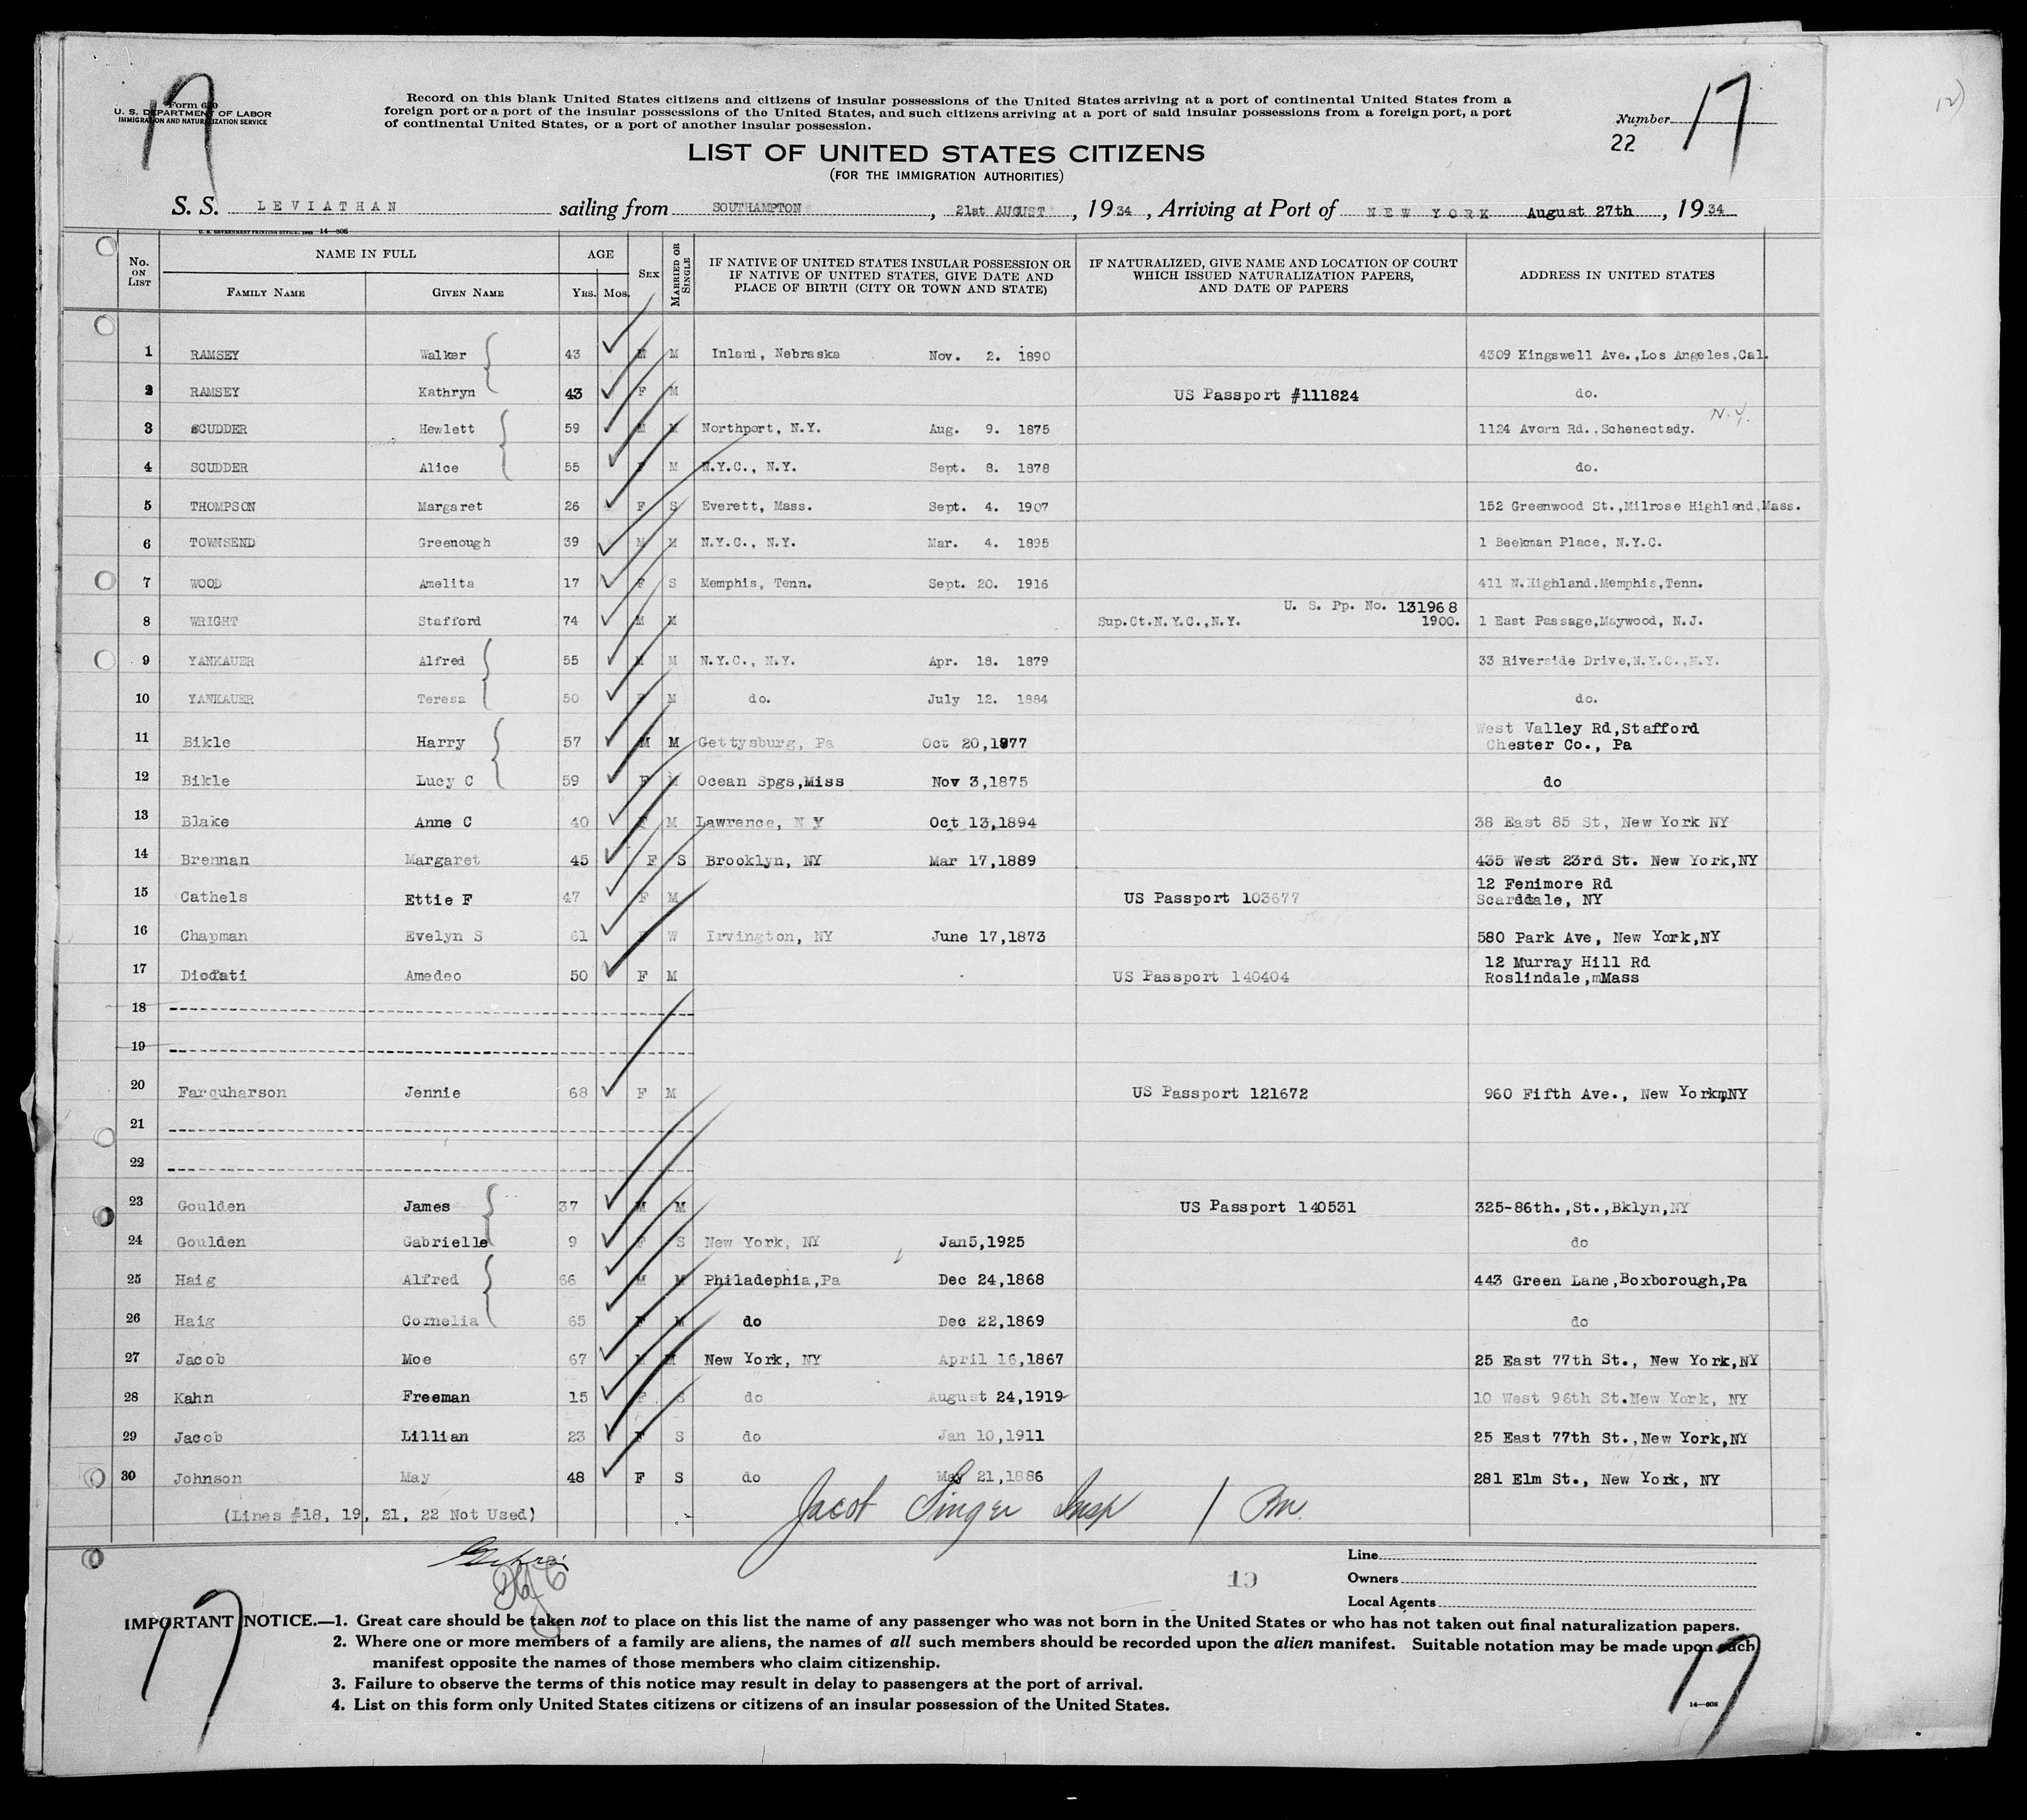 17
17
12)
Form 630
U. S. DEPARTMENT OF LABOR
IMMIGRATION AND NATURALIZATION SERVICE
Record on this blank United States citizens and citizens of insular possessions of the United States arriving at a port of continental United States from a
foreign port or a port of the insular possessions of the United States, and such citizens arriving at a port of said insular possessions from a foreign port, a port
of continental United States, or a port of another insular possession.
Number
22
LIST OF UNITED STATES CITIZENS
(FOR THE IMMIGRATION AUTHORITIES)
S. S. LEVIATHAN sailing from SOUTHAMPTON, 21st AUGUST, 1934, Arriving at Port of NEW YORK August 27th, 1934
U. S. GOVERNMENT PRINTING OFFICE: 14—608
No. ON LIST NAME IN FULL FAMILY NAME GIVEN NAME AGE YRS. MOS. SEX MARRIED OR SINGLE IF NATIVE OF UNITED STATES INSULAR POSSESSION OR IF NATIVE OF UNITED STATES, GIVE DATE AND PLACE OF BIRTH (CITY OR TOWN AND STATE) IF NATURALIZED, GIVE NAME AND LOCATION OF COURT WHICH ISSUED NATURALIZATION PAPERS, AND DATE OF PAPERS ADDRESS IN UNITED STATES
1 RAMSEY Walker 43 M M Inland, Nebraska Nov. 2. 1890 4309 Kingswell Ave.,Los Angeles,Cal.
2 RAMSEY Kathryn 43 F M US Passport #111824 do.
N.Y.
3 SCUDDER Hewlett 59 M M Northport, N.Y. Aug. 9. 1875 1124 Avorn Rd.,Schenectady.
4 SCUDDER Alice 55 F M N.Y.C., N.Y. Sept. 8. 1878 do.
5 THOMPSON Margaret 26 F S Everett, Mass. Sept. 4. 1907 152 Greenwood St.,Milrose Highland,Mass.
6 TOWNSEND Greenough 39 M M N.Y.C., N.Y. Mar. 4. 1895 1 Beekman Place, N.Y.C.
7 WOOD Amelita 17 F S Memphis, Tenn. Sept. 20. 1916 411 N.Highland.Memphis,Tenn.
U. S. Pp. No. 131968
8 WRIGHT Stafford 74 M M Sup.Ct.N.Y.C.,N.Y. 1900. 1 East Passage,Maywood, N.J.
9 YANKAUER Alfred 55 M M N.Y.C., N.Y. Apr. 18. 1879 33 Riverside Drive,N.Y.C.,N.Y.
10 YANKAUER Teresa 50 F M do. July 12. 1884 do.
11 Bikle Harry 57 M M Gettysburg, Pa Oct 20,1877 West Valley Rd,Stafford
Chester Co., Pa
12 Bikle Lucy C 59 F M Ocean Spgs,Miss Nov 3,1875 do
13 Blake Anne C 40 F M Lawrence, N Y Oct 13,1894 38 East 85 St, New York NY
14 Brennan Margaret 45 F S Brooklyn, NY Mar 17,1889 435 West 23rd St. New York,NY
15 Cathels Ettie F 47 F M US Passport 103677 12 Fenimore Rd
Scarsdale, NY
16 Chapman Evelyn S 61 F W Irvington, NY June 17,1873 580 Park Ave, New York,NY
17 Diodati Amedeo 50 F M US Passport 140404 12 Murray Hill Rd
Roslindale,mMass
18
19
20 Farquharson Jennie 68 F M US Passport 121672 960 Fifth Ave., New York,NY
21
22
23 Goulden James 37 M M US Passport 140531 325-86th.,St.,Bklyn,NY
24 Goulden Gabrielle 9 F S New York, NY Jan5,1925 do
25 Haig Alfred 66 M M Philadephia,Pa Dec 24,1868 443 Green Lane,Boxborough,Pa
26 Haig Cornelia 65 F M do Dec 22,1869 do
27 Jacob Moe 67 M M New York, NY April 16,1867 25 East 77th St., New York,NY
28 Kahn Freeman 15 F S do August 24,1919 10 West 96th St.New York, NY
29 Jacob Lillian 23 F S do Jan 10,1911 25 East 77th St.,New York,NY
30 Johnson May 48 F S do May 21,1886 281 Elm St., New York, NY
(Lines #18, 19, 21, 22 Not Used)
Jacob Singer Insp
Line
Owners
Local Agents
19
IMPORTANT NOTICE.—1. Great care should be taken not to place on this list the name of any passenger who was not born in the United States or who has not taken out final naturalization papers.
2. Where one or more members of a family are aliens, the names of all such members should be recorded upon the alien manifest. Suitable notation may be made upon such
manifest opposite the names of those members who claim citizenship.
3. Failure to observe the terms of this notice may result in delay to passengers at the port of arrival.
4. List on this form only United States citizens or citizens of an insular possession of the United States.
14—608
17
17